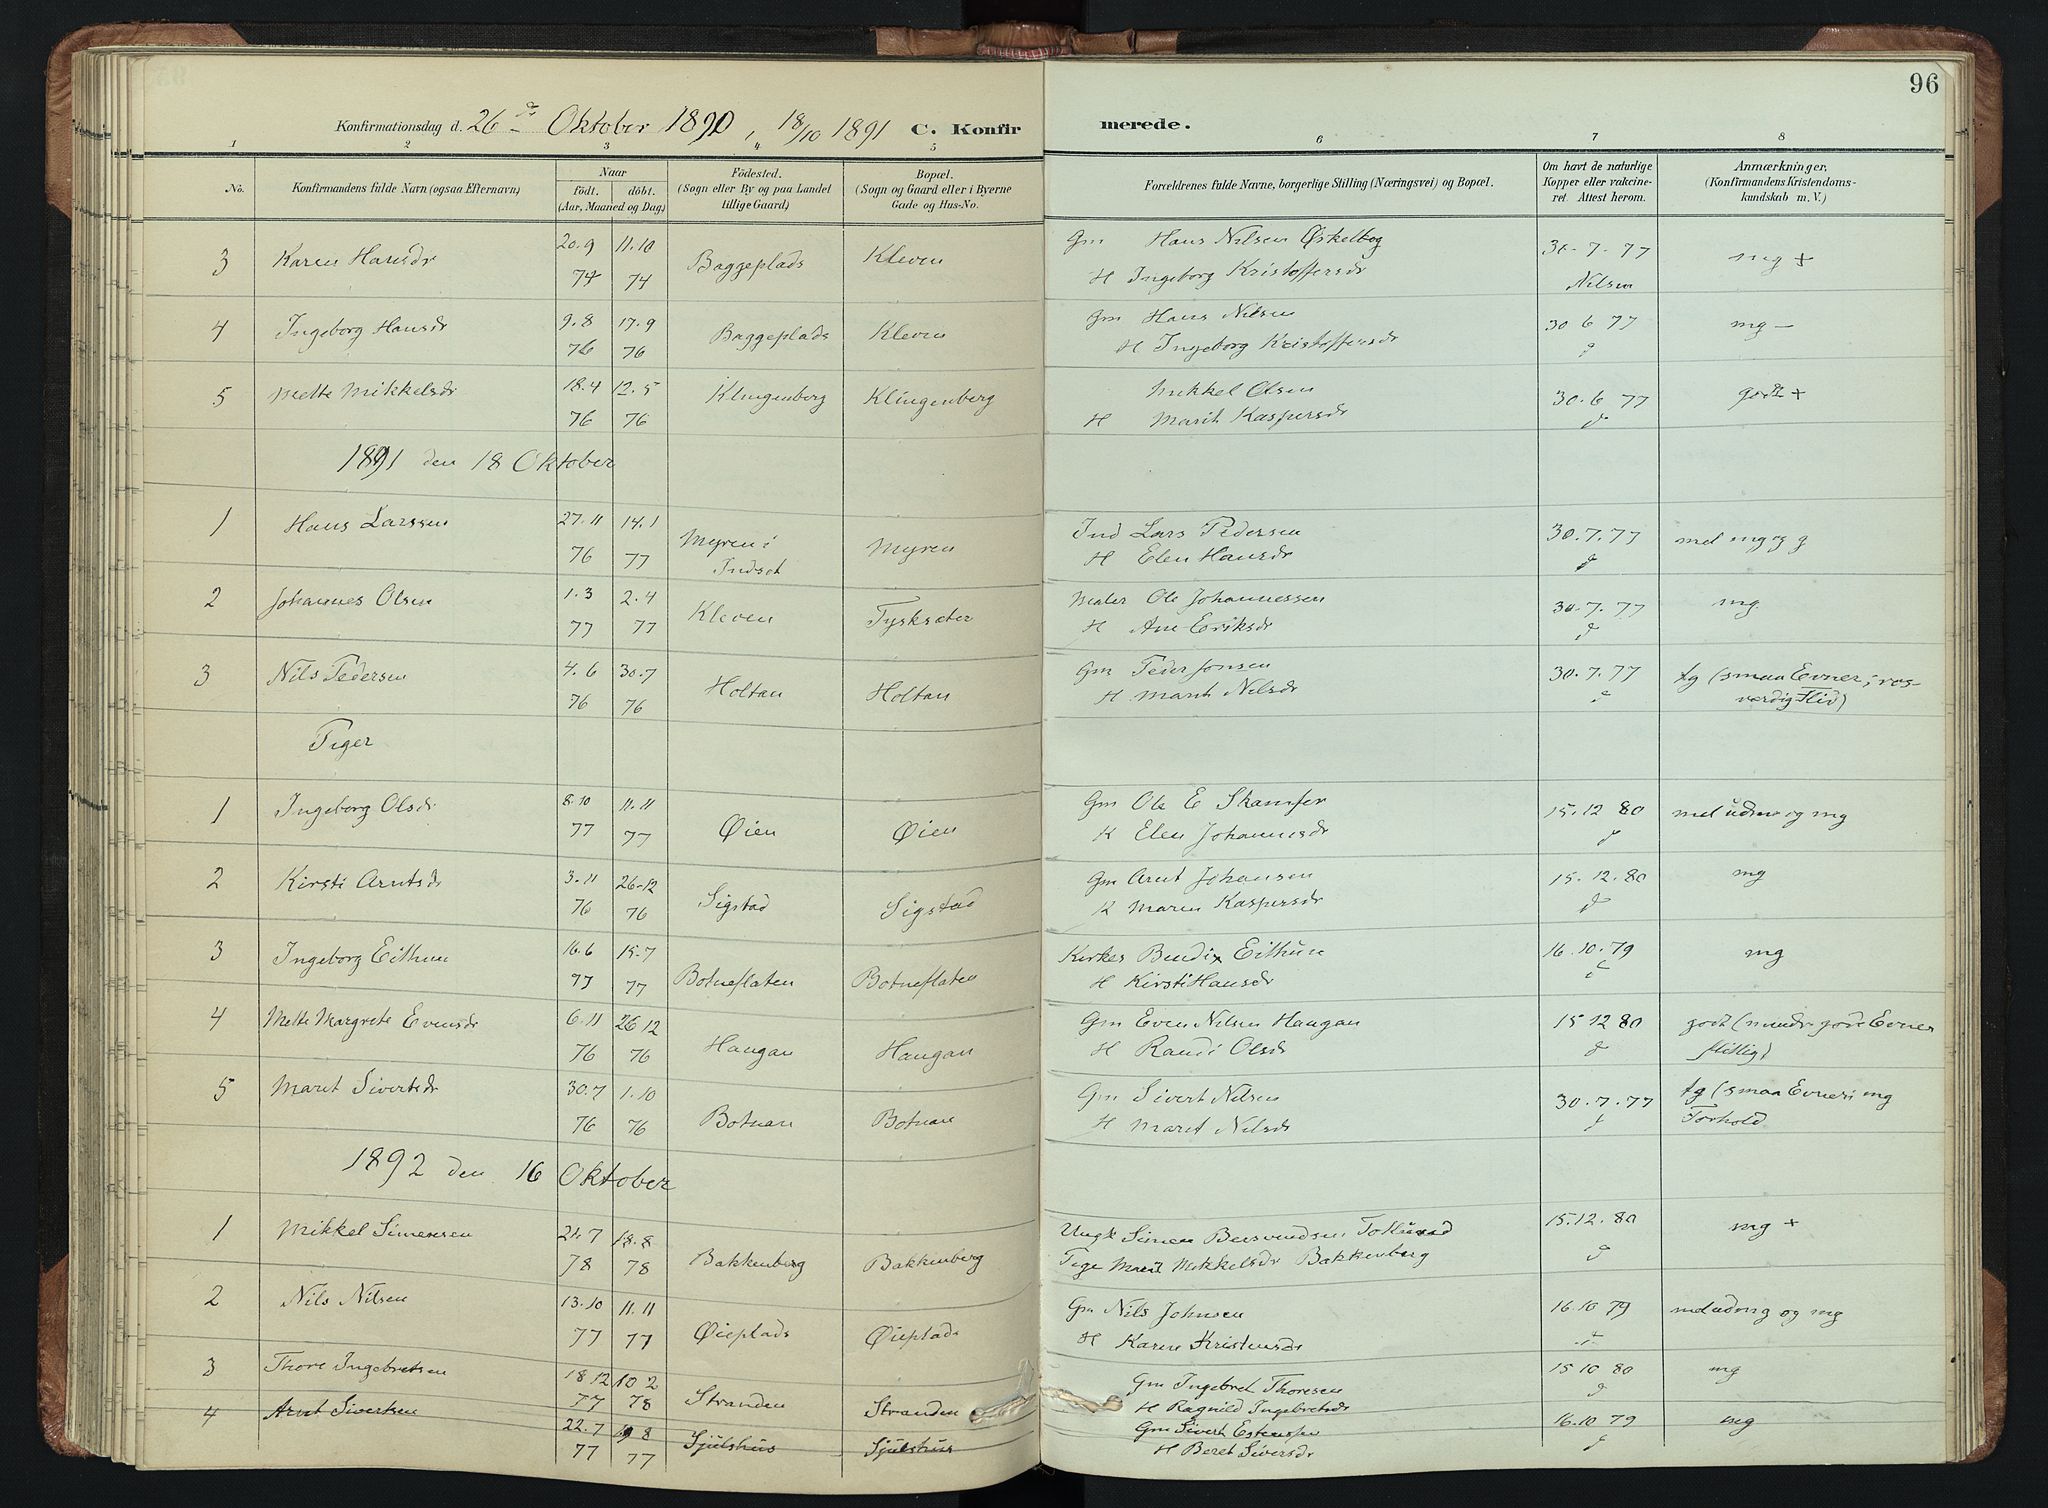 96
Konfirmationsdag d. 26de Oktober 1890, 18/10 1891 C. Konfirmerede.
1 2 3 4 5 6 7 8
No. Konfirmandens fulde Navn (ogsaa Efternavn). Naar født. døbt. (Aar, Maaned og Dag.) Fødested. (Sogn eller By og paa Landet tillige Gaard) Bopæl. (Sogn og Gaard eller i Byerne Gade og Hus-No. Forældrenes fulde Navne, borgerlige Stilling (Næringsvei) og Bopæl. Om havt de naturlige Kopper eller vakcineret. Attest herom. Anmærkninger, (Konfirmandens Kristendomskundskab m. V.)
3 Karen Hansdr 20.9 11.10 Baggeplads Kleven Gm Hans Nilsen Øskelbog 30.7.77 mg +
74 74 H Ingeborg Kristoffersdr Nilsen
4 Ingeborg Hansdr 9.8 17.9 Baggeplads Kleven Gm Hans Nilsen 30 6 77 mg –
76 76 H Ingeborg Kristoffersdr
5 Mette Mikkelsdr 18.4 12.5 Klingenberg Klingenberg Mikkel Olsen 30.6 77 godt +
76 76 H Marit Kaspersdr
1891 den 18 Oktober
1 Hans Larssen 27.11 14.1 Myren i Indset Myren Ind Lars Pedersen 30.7.77 mel mg og g
76 77 H Elen Hansdr
2 Johannes Olsen 1.3 2.4 Kleven Tysksæter Maler Ole Johannessen 30.7.77 mg
77 77 H Ane Eriksdr
3 Nils Pedersen 4.6 30.7 Holtan Holtan Gm Peder Jonsen 30.7.77 tg (smaa Evner; rosværdig Flid)
76 76 H Marit Nilsdr
Piger
1 Ingeborg Olsdr 8.10 11.11 Øien Øien Gm Ole E Skamfer 15.12 80 mel udm og mg
77 77 K Elen Johannesdr
2 Kirsti Arntsdr 3.11 26-12 Sigstad Sigstad Gm Arnt Johansen 15.12.80 mg
76 76 K Maren Kaspersdr
3 Ingeborg Eithun 16.6 15.7 Botneflaten Botneflaten Kirkes Bendix Eithun 16.10.79 mg
77 77 H Kirsti Hansdr
4 Mette Margrete Evensdr 6.11 26 12 Haugan Haugan Gm Even Nilsen Haugan 15 12 80 godt (mindre gode Evner flittig)
76 76 H Randi Olsdr
5 Marit Sivertsdr 30.7 1.10 Botnan Botnan Gm Sivert Nilsen 30.7.77 tg (smaa Evner; mg Forhold
76 76 H Marit Nilsdr
1892 den 16 Oktober
1 Mikkel Simensen 24.7 18.8 Bakkenberg Bakkenberg Ungk Simen Bersvendsen 15.12.80 mg +
78 78 Pige Marit Mikkelsdr Bakkenberg
2 Nils Nilsen 13.10 11.11 Øieplads Øieplads Gm Nils Johnsen 16.10 79 mel udm g og mg
77 77 H Karen Kristensdr
3 Thore Ingebretsen 18 12 10 2 Stranden Stranden Gm Ingebret Thoresen 15 10 80 mg
77 78 H Ragnild Ingebretsdr
4 Arnt Sivertsen 22.7 19 8 Sjulshus Sjulshus Gm Sivert Estensen 16.10 79 mg
77 77 H Beret Siversdr